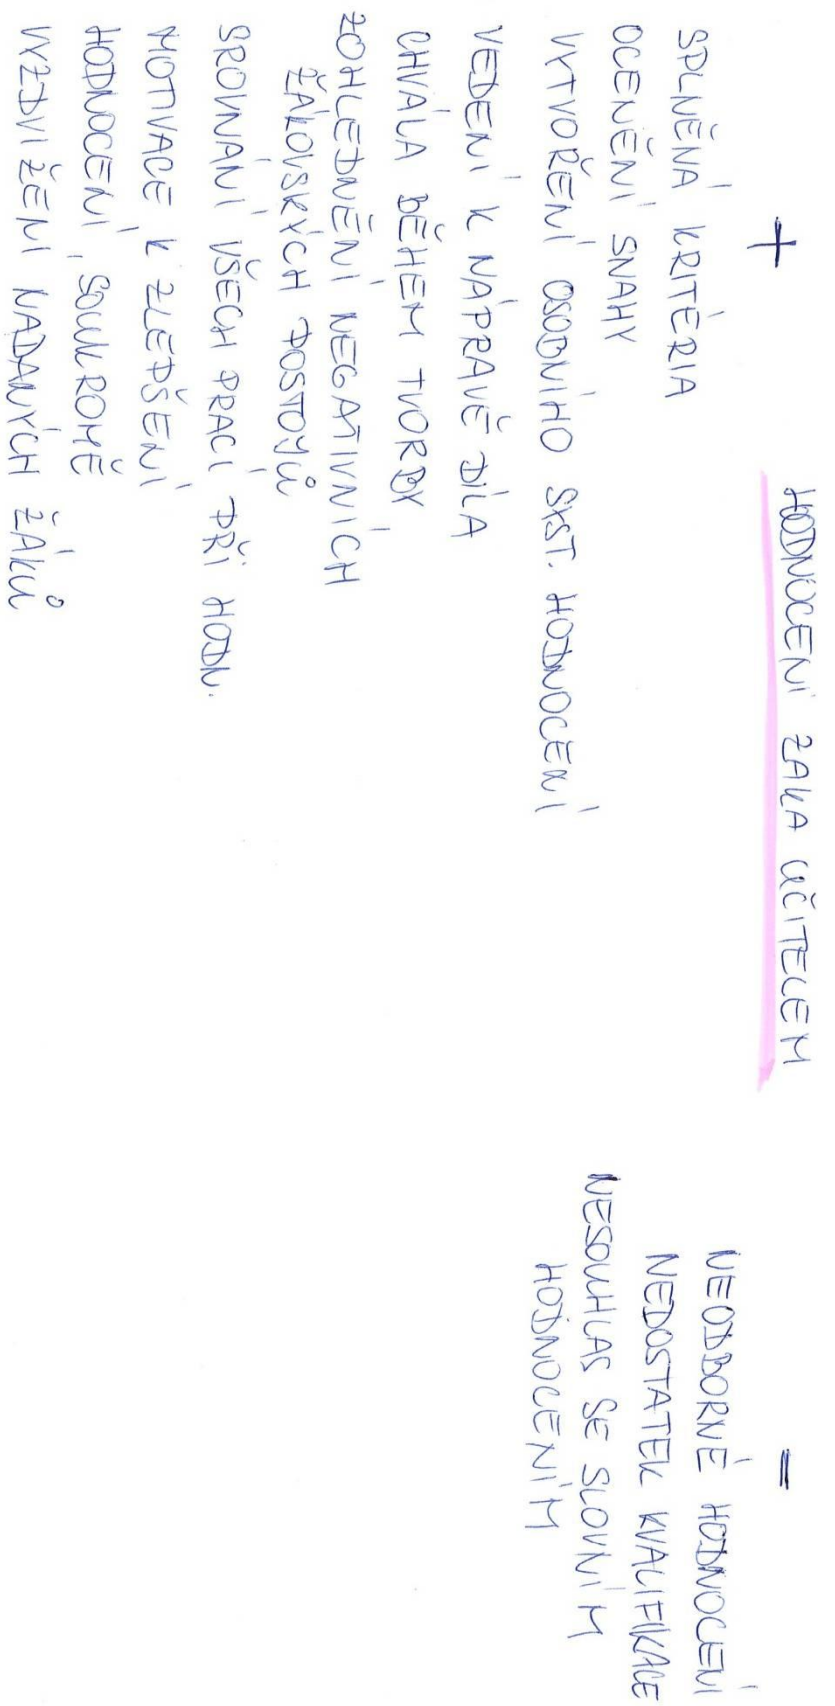 HODNOCENÍ ŽÁKA UČITELEM
+
SPLNĚNÁ KRITÉRIA
OCENĚNÍ SNAHY
VYTVOŘENÍ OSOBNÍHO SYST. HODNOCENÍ
VEDENÍ K NÁPRAVĚ DÍLA
CHVÁLA BĚHEM TVORBY
ZOHLEDNĚNÍ NEGATIVNÍCH
ŽÁKOVSKÝCH POSTOJŮ
SROVNÁNÍ VŠECH PRACÍ PŘI HODN.
MOTIVACE K ZLEPŠENÍ
HODNOCENÍ SOUKROMĚ
VYZDVIŽENÍ NADANÝCH ŽÁKŮ
-
NEODBORNÉ HODNOCENÍ
NEDOSTATEK KVALIFIKACE
NESOUHLAS SE SLOVNÍM
HODNOCENÍM